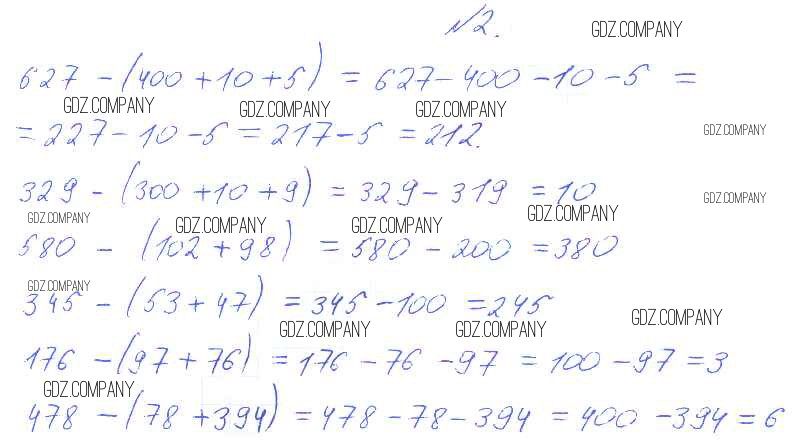 №2. GDZ.COMPANY
627 - (400 + 10 + 5) = 627 - 400 - 10 - 5 =
GDZ.COMPANY GDZ.COMPANY GDZ.COMPANY
= 227 - 10 - 5 = 217 - 5 = 212. GDZ.COMPANY
329 - (300 + 10 + 9) = 329 - 319 = 10 GDZ.COMPANY
GDZ.COMPANY GDZ.COMPANY GDZ.COMPANY GDZ.COMPANY
580 - (102 + 98) = 580 - 200 = 380
GDZ.COMPANY
345 - (53 + 47) = 345 - 100 = 245
GDZ.COMPANY GDZ.COMPANY GDZ.COMPANY
176 - (97 + 76) = 176 - 76 - 97 = 100 - 97 = 3
GDZ.COMPANY
478 - (78 + 394) = 478 - 78 - 394 = 400 - 394 = 6